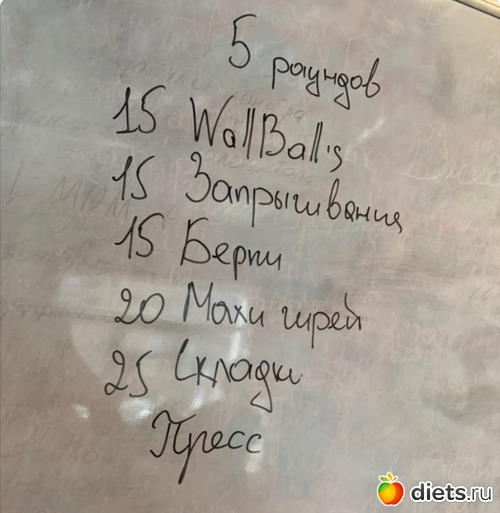 5 раундов
15 WallBall's
15 Запрыгивания
15 Берпи
20 Махи гирей
25 Складки
Пресс
diets.ru